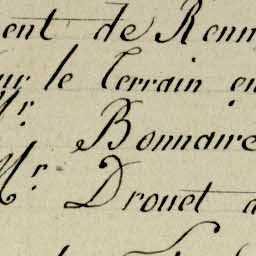 ent de Renn
ur le Terrain en
Mr. Bonnaire
Mr. Drouet